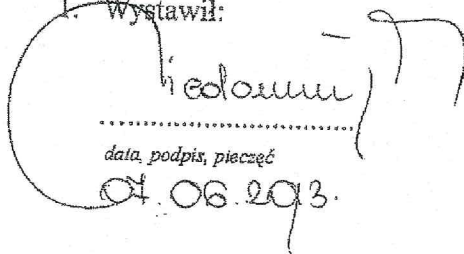 1. Wystawił:
data, podpis, pieczęć
07.06.2013.